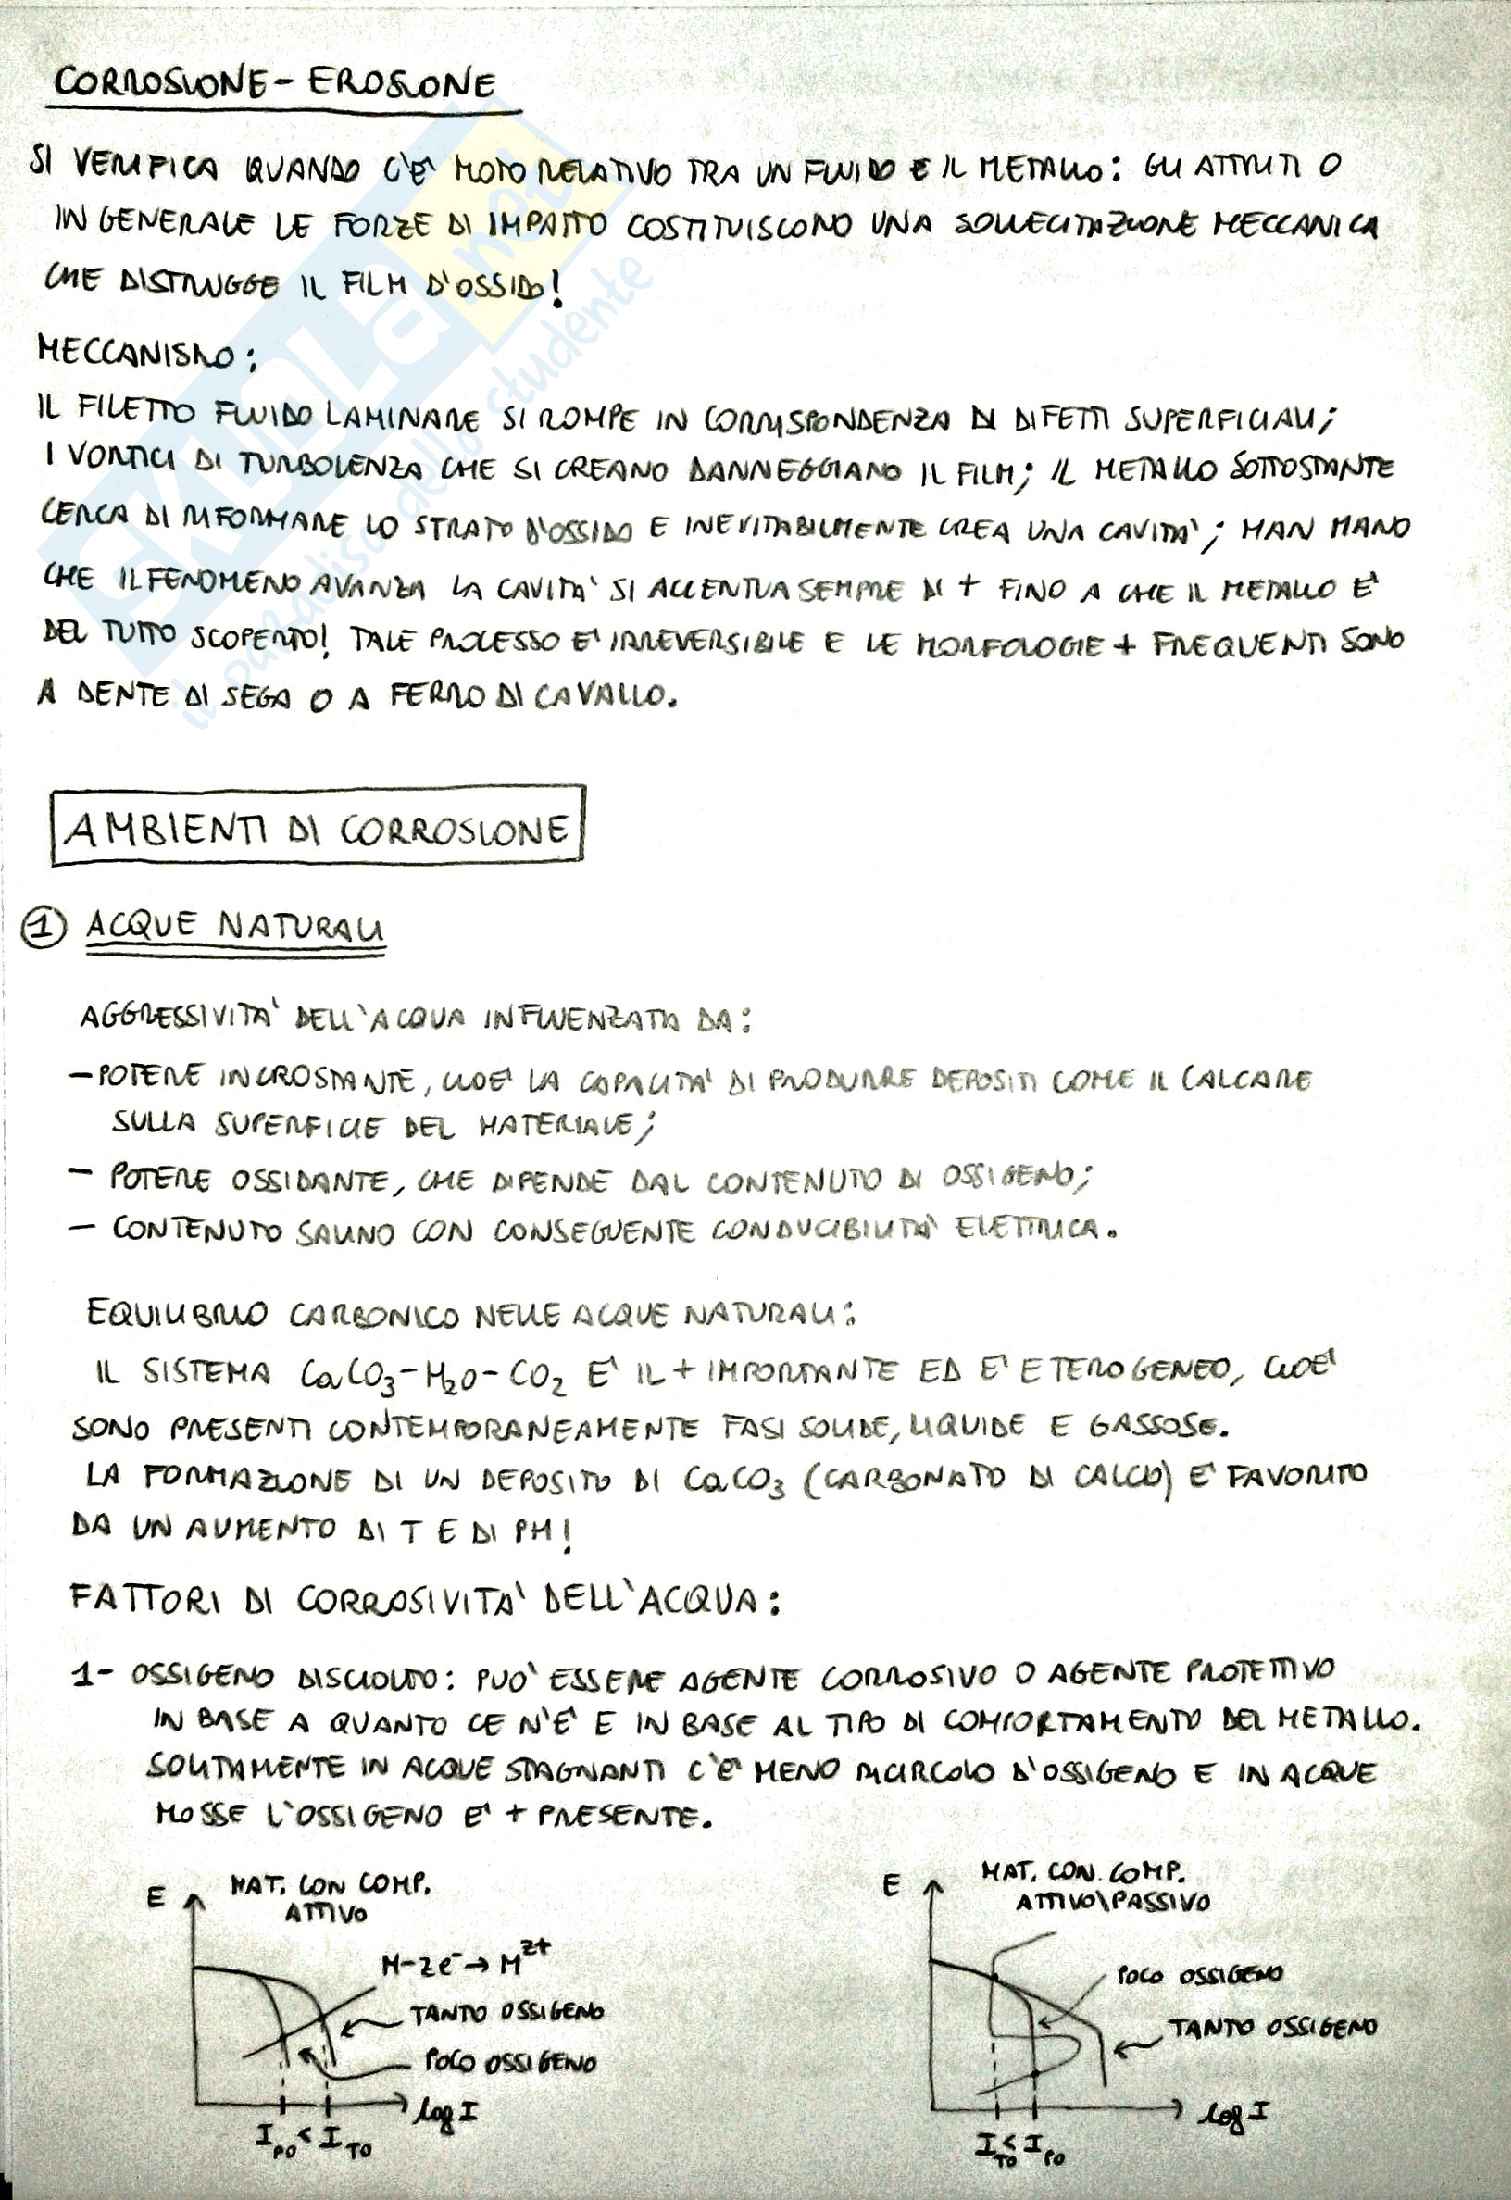 CORROSIONE - EROSIONE
SI VERIFICA QUANDO C'E' MOTO RELATIVO TRA UN FLUIDO E IL METALLO: GLI ATTRITI O
IN GENERALE LE FORZE DI IMPATTO COSTITUISCONO UNA SOLLECITAZIONE MECCANICA
CHE DISTRUGGE IL FILM D'OSSIDO!
MECCANISMO:
IL FILETTO FLUIDO LAMINARE SI ROMPE IN CORRISPONDENZA DI DIFETTI SUPERFICIALI;
I VORTICI DI TURBOLENZA CHE SI CREANO DANNEGGIANO IL FILM; IL METALLO SOTTOSTANTE
CERCA DI RIFORMARE LO STRATO D'OSSIDO E INEVITABILMENTE CREA UNA CAVITA'; MAN MANO
CHE IL FENOMENO AVANZA LA CAVITA' SI ACCENTUA SEMPRE DI + FINO A CHE IL METALLO E'
DEL TUTTO SCOPERTO! TALE PROCESSO E' IRREVERSIBILE E LE MORFOLOGIE + FREQUENTI SONO
A DENTE DI SEGA O A FERRO DI CAVALLO.
SKUOLA.net
il paradiso dello studente
AMBIENTI DI CORROSIONE
1 ACQUE NATURALI
AGGRESSIVITA' DELL'ACQUA INFLUENZATA DA:
- POTERE INCROSTANTE, CIOE' LA CAPACITA' DI PRODURRE DEPOSITI COME IL CALCARE
SULLA SUPERFICIE DEL MATERIALE;
- POTERE OSSIDANTE, CHE DIPENDE DAL CONTENUTO DI OSSIGENO;
- CONTENUTO SALINO CON CONSEGUENTE CONDUCIBILITA' ELETTRICA.
EQUILIBRIO CARBONICO NELLE ACQUE NATURALI:
IL SISTEMA CaCO₃-H₂O-CO₂ E' IL + IMPORTANTE ED E' ETEROGENEO, CIOE'
SONO PRESENTI CONTEMPORANEAMENTE FASI SOLIDE, LIQUIDE E GASSOSE.
LA FORMAZIONE DI UN DEPOSITO DI CaCO₃ (CARBONATO DI CALCIO) E' FAVORITO
DA UN AUMENTO DI T E DI PH!
FATTORI DI CORROSIVITA' DELL'ACQUA:
1- OSSIGENO DISCIOLTO: PUO' ESSERE AGENTE CORROSIVO O AGENTE PROTETTIVO
IN BASE A QUANTO CE N'E' E IN BASE AL TIPO DI COMPORTAMENTO DEL METALLO.
SOLITAMENTE IN ACQUE STAGNANTI C'E' MENO RICIRCOLO D'OSSIGENO E IN ACQUE
MOSSE L'OSSIGENO E' + PRESENTE.
E MAT. CON COMP.
ATTIVO
M-ze⁻→M^z+
TANTO OSSIGENO
POCO OSSIGENO
log I
I_PO < I_TO
E MAT. CON COMP.
ATTIVO\PASSIVO
POCO OSSIGENO
TANTO OSSIGENO
log I
I_TO ≤ I_PO